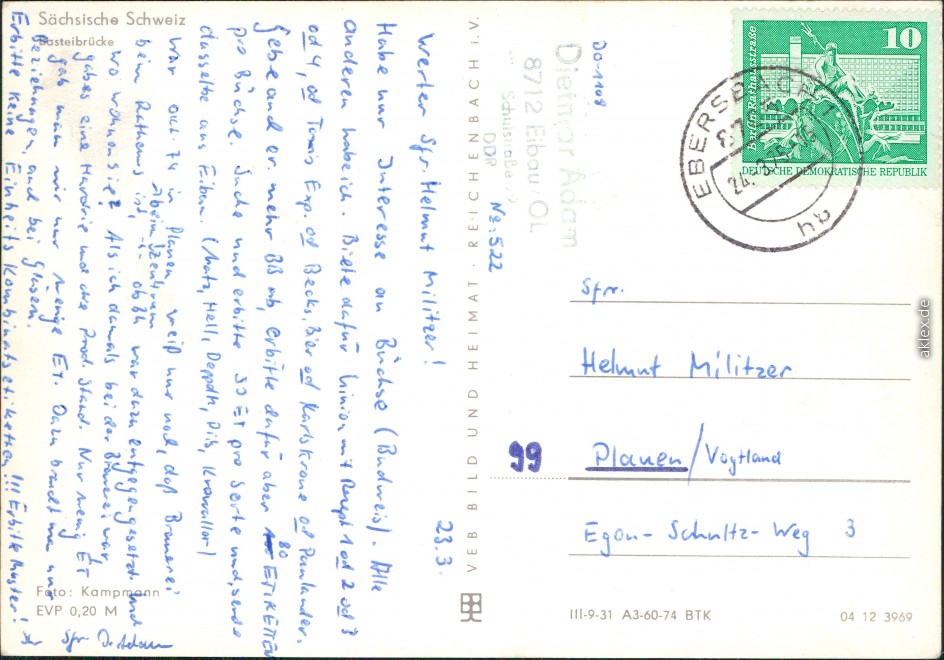 Sächsische Schweiz
Basteibrücke
Do-1108
Dietmar Adam
8712 Eibau/OL
Schulstraße
DDR
Nr: 522
10
Berlin-Rathausstraße
DEUTSCHE DEMOKRATISCHE REPUBLIK
EBERSBACH
8.7
24.3.75
hb
23.3.
Werter Sfr. Helmut Militzer!
Habe nur Interesse an Büchse (Budweis). Alle
anderen habe ich. Biete dafür Union mit Rezept 1 od 2 od 3
od 4, od Turmis Exp. od Becks Bier od Karlskrone od Paulander.
Gebe and er. mehr BB ab, erbitte dafür aber 80 ETIKETTEN
pro Büchse. Suche und erbitte 50 ET pro Sorte und sende
dasselbe aus Eiban. (Malz, Hell, Deppdk, Pils, Kravallor)
War Okt. 74 in Plauen weiß nur noch, daß Brauerei
beim Rathaus/beim Zentrum ist, obh war dazu entgegengesetzt. Und
wo wohnen sie? Als ich damals bei der Brauerei war,
gab es eine Havarie und die Prod. stand. Nur wenig ET
gab man mir nur wenige ET. Dazu braucht man nur
Beziehungen, auch bei Gläsern.
Erbitte keine Einheits Kombinatsetiketten!!! Erbitte Muster!
Sfr D. Adam
Foto: Kampmann
EVP 0,20 M
VEB BILD UND HEIMAT · REICHENBACH i. V.
Sfr.
Helmut Militzer
99
Plauen/Vogtland
Egon-Schultz-Weg 3
III-9-31 A3-60-74 BTK
04 12 3969
aklex.de